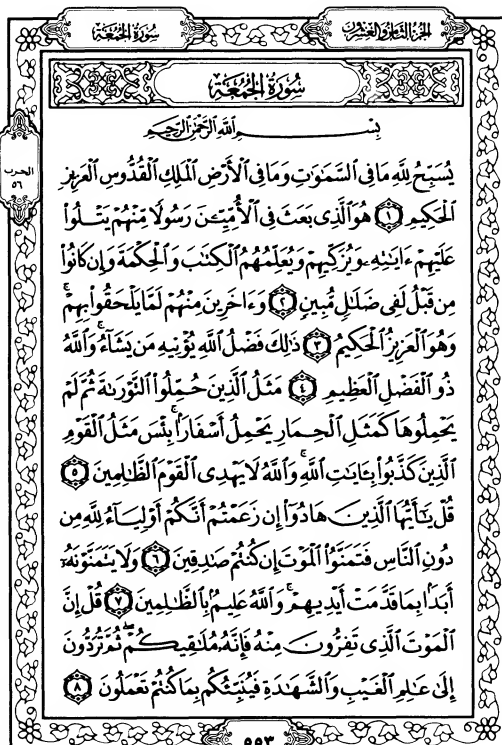 الجزء الثامن والعشرون
سُورَةُ الجُمُعَة
سُورَةُ الجُمُعَة
الحزب
٥٦
بِسْمِ ٱللَّهِ ٱلرَّحْمَٰنِ ٱلرَّحِيمِ
يُسَبِّحُ لِلَّهِ مَا فِى ٱلسَّمَٰوَٰتِ وَمَا فِى ٱلْأَرْضِ ٱلْمَلِكِ ٱلْقُدُّوسِ ٱلْعَزِيزِ
ٱلْحَكِيمِ ١ هُوَ ٱلَّذِى بَعَثَ فِى ٱلْأُمِّيِّـۧنَ رَسُولًا مِّنْهُمْ يَتْلُوا۟
عَلَيْهِمْ ءَايَٰتِهِۦ وَيُزَكِّيهِمْ وَيُعَلِّمُهُمُ ٱلْكِتَٰبَ وَٱلْحِكْمَةَ وَإِن كَانُوا۟
مِن قَبْلُ لَفِى ضَلَٰلٍ مُّبِينٍ ٢ وَءَاخَرِينَ مِنْهُمْ لَمَّا يَلْحَقُوا۟ بِهِمْ ۚ
وَهُوَ ٱلْعَزِيزُ ٱلْحَكِيمُ ٣ ذَٰلِكَ فَضْلُ ٱللَّهِ يُؤْتِيهِ مَن يَشَآءُ ۚ وَٱللَّهُ
ذُو ٱلْفَضْلِ ٱلْعَظِيمِ ٤ مَثَلُ ٱلَّذِينَ حُمِّلُوا۟ ٱلتَّوْرَىٰةَ ثُمَّ لَمْ
يَحْمِلُوهَا كَمَثَلِ ٱلْحِمَارِ يَحْمِلُ أَسْفَارًۢا ۚ بِئْسَ مَثَلُ ٱلْقَوْمِ
ٱلَّذِينَ كَذَّبُوا۟ بِـَٔايَٰتِ ٱللَّهِ ۚ وَٱللَّهُ لَا يَهْدِى ٱلْقَوْمَ ٱلظَّٰلِمِينَ ٥
قُلْ يَٰٓأَيُّهَا ٱلَّذِينَ هَادُوٓا۟ إِن زَعَمْتُمْ أَنَّكُمْ أَوْلِيَآءُ لِلَّهِ مِن
دُونِ ٱلنَّاسِ فَتَمَنَّوُا۟ ٱلْمَوْتَ إِن كُنتُمْ صَٰدِقِينَ ٦ وَلَا يَتَمَنَّوْنَهُۥٓ
أَبَدًۢا بِمَا قَدَّمَتْ أَيْدِيهِمْ ۚ وَٱللَّهُ عَلِيمٌۢ بِٱلظَّٰلِمِينَ ٧ قُلْ إِنَّ
ٱلْمَوْتَ ٱلَّذِى تَفِرُّونَ مِنْهُ فَإِنَّهُۥ مُلَٰقِيكُمْ ۖ ثُمَّ تُرَدُّونَ
إِلَىٰ عَٰلِمِ ٱلْغَيْبِ وَٱلشَّهَٰدَةِ فَيُنَبِّئُكُم بِمَا كُنتُمْ تَعْمَلُونَ ٨
٥٥٣